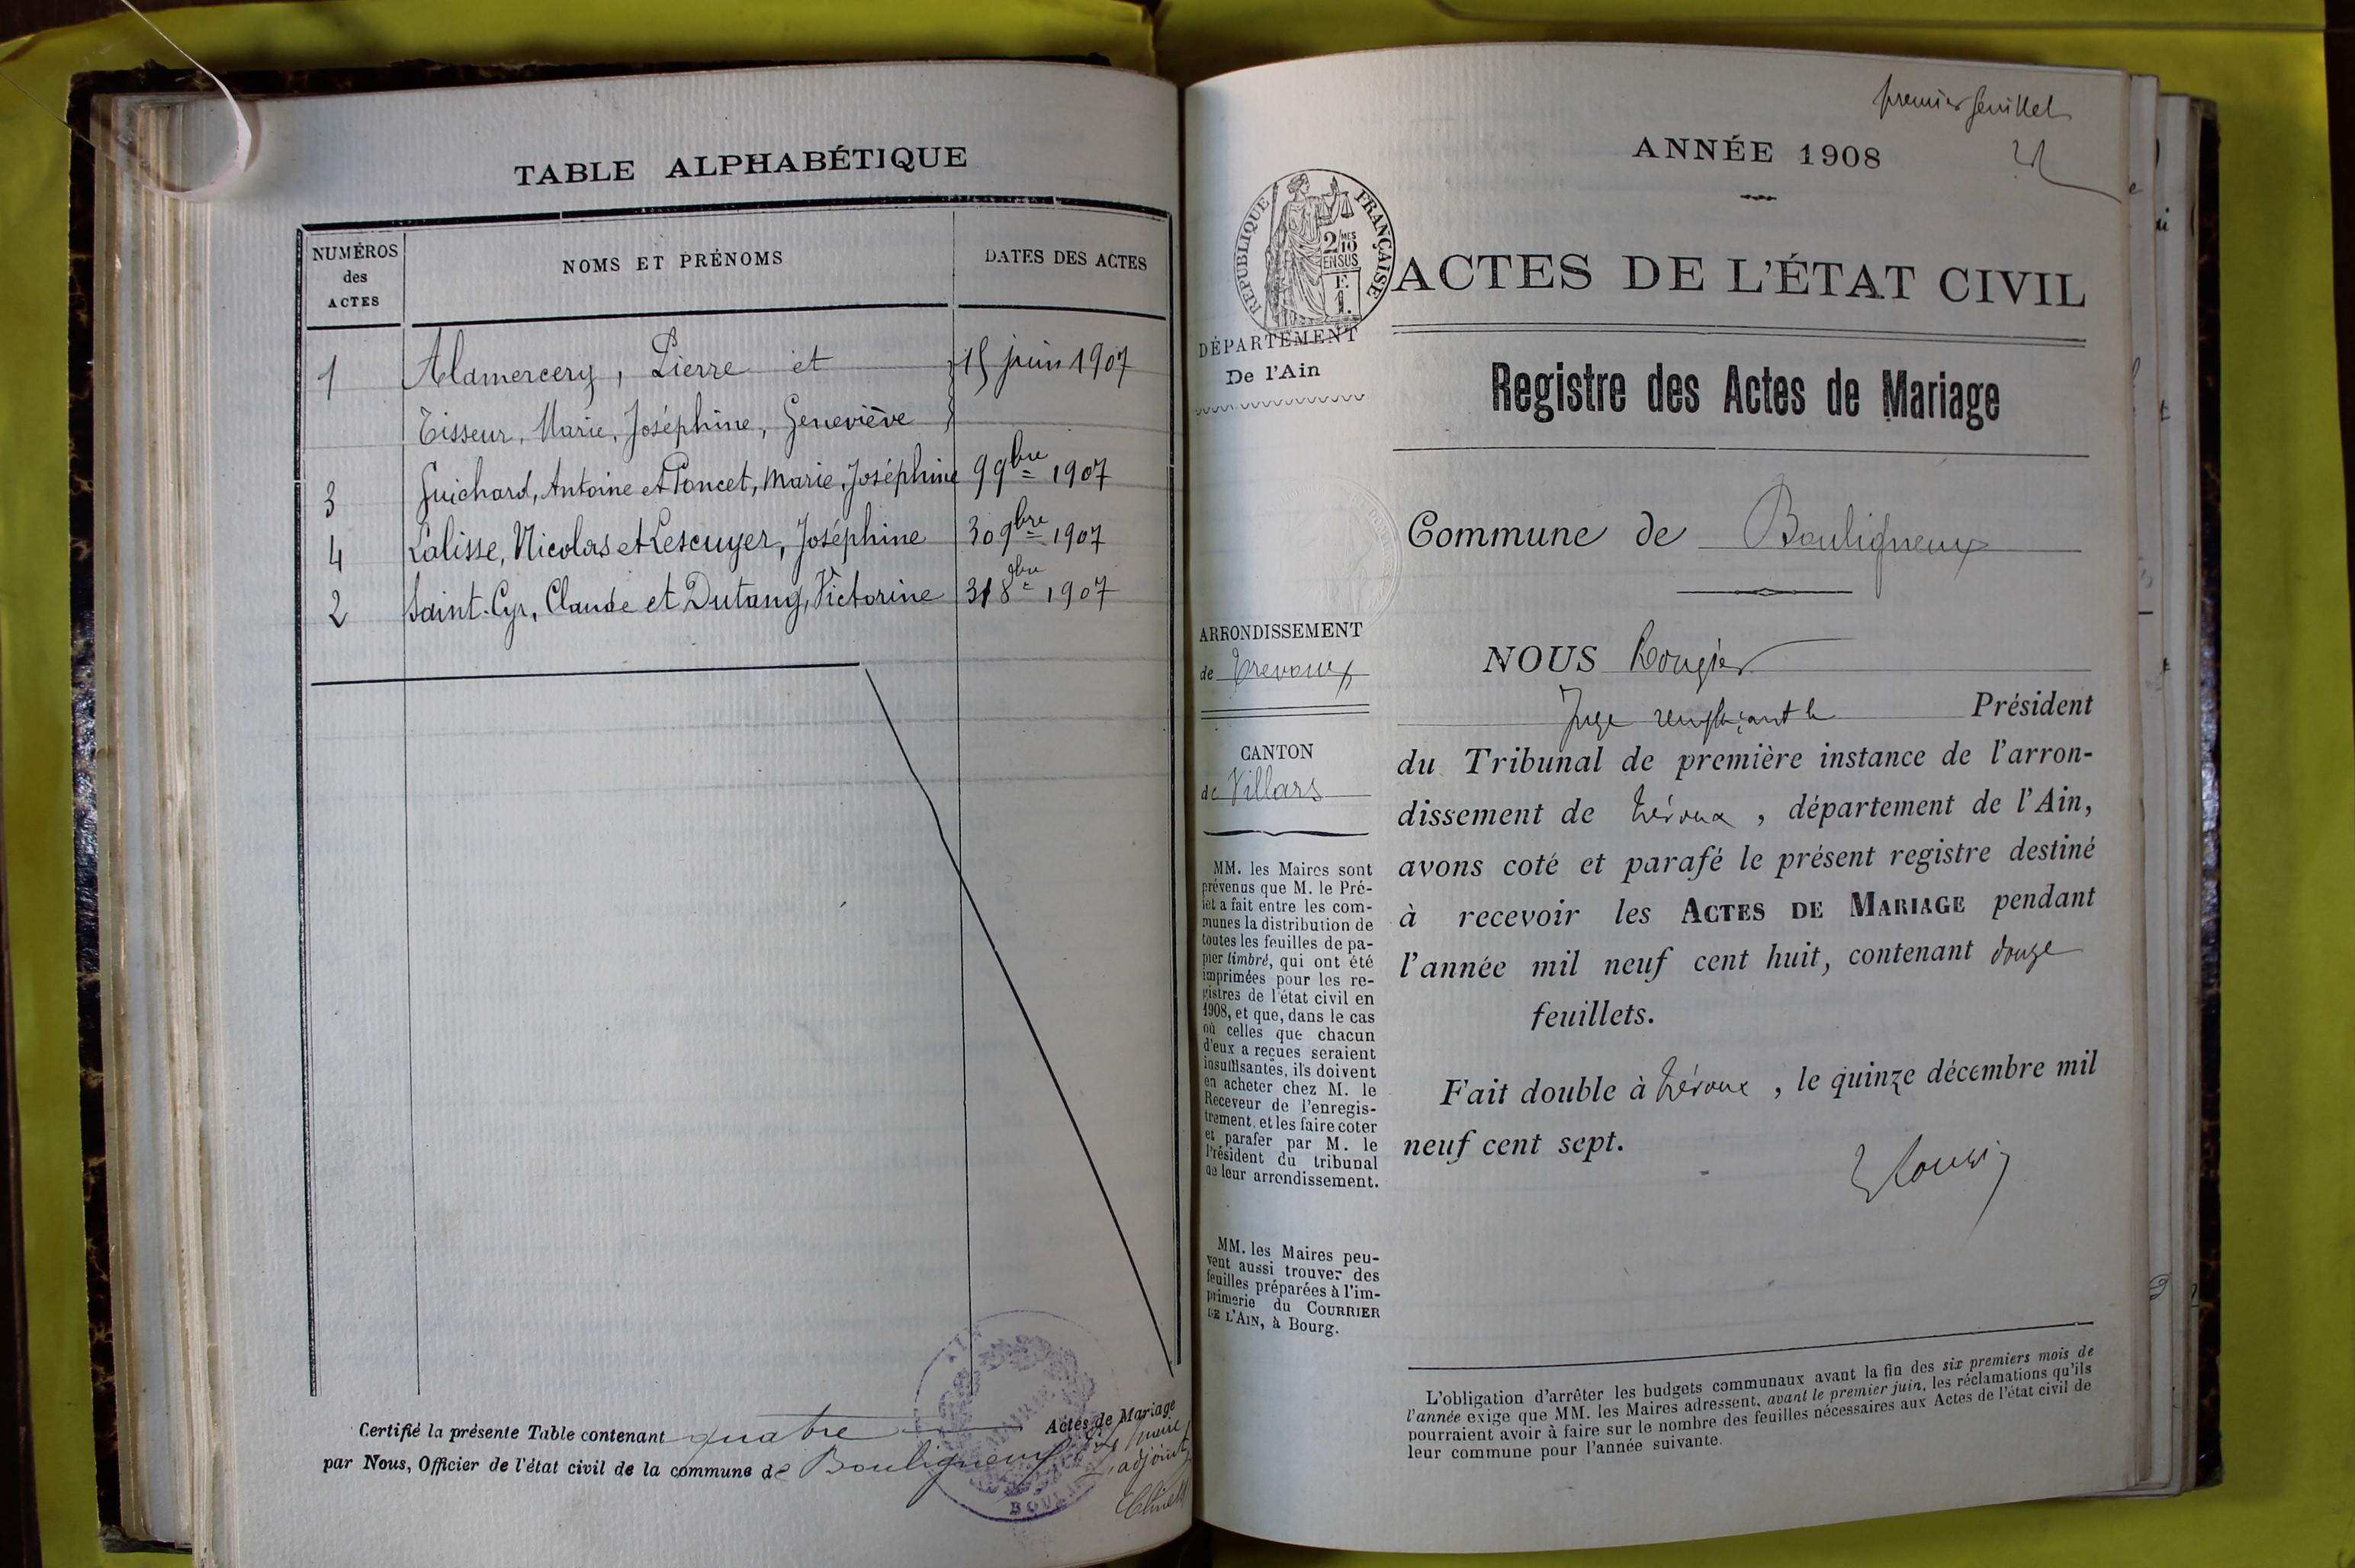 TABLE ALPHABÉTIQUE
NUMÉROS des ACTES
NOMS ET PRÉNOMS
DATES DES ACTES
1 Alamercery, Pierre et 15 juin 1907
Tisseur, Marie, Joséphine, Geneviève
3 Guichard, Antoine et Poncet, Marie, Joséphine 9 9bre 1907
4 Lalisse, Nicolas et Lescuyer, Joséphine 30 9bre 1907
2 Saint-Cyr, Claude et Dutang, Victorine 31 8bre 1907
Certifié la présente Table contenant quatre Actes de Mariage
par Nous, Officier de l'état civil de la commune de Bouligneux
adjoint
premier feuillet
ANNÉE 1908
RÉPUBLIQUE FRANÇAISE
2/10 MES
EN SUS
F.
1.
ACTES DE L'ÉTAT CIVIL
DÉPARTEMENT
De l'Ain
Registre des Actes de Mariage
Commune de Bouligneux
ARRONDISSEMENT
de Trevoux
CANTON
de Villars
MM. les Maires sont
prévenus que M. le Pré-
fet a fait entre les com-
munes la distribution de
toutes les feuilles de pa-
pier timbré, qui ont été
imprimées pour les re-
gistres de l'état civil en
1908, et que, dans le cas
où celles que chacun
d'eux a reçues seraient
insuffisantes, ils doivent
en acheter chez M. le
Receveur de l'enregis-
trement, et les faire coter
et parafer par M. le
Président du tribunal
de leur arrondissement.
MM. les Maires peu-
vent aussi trouver des
feuilles préparées à l'im-
primerie du COURRIER
DE L'AIN, à Bourg.
NOUS Rougier
Juge remplaçant le Président
du Tribunal de première instance de l'arron-
dissement de Trévoux, département de l'Ain,
avons coté et parafé le présent registre destiné
à recevoir les ACTES DE MARIAGE pendant
l'année mil neuf cent huit, contenant douze
feuillets.
Fait double à Trévoux, le quinze décembre mil
neuf cent sept.
L'obligation d'arrêter les budgets communaux avant la fin des six premiers mois de
l'année exige que MM. les Maires adressent, avant le premier juin, les réclamations qu'ils
pourraient avoir à faire sur le nombre des feuilles nécessaires aux Actes de l'état civil de
leur commune pour l'année suivante.